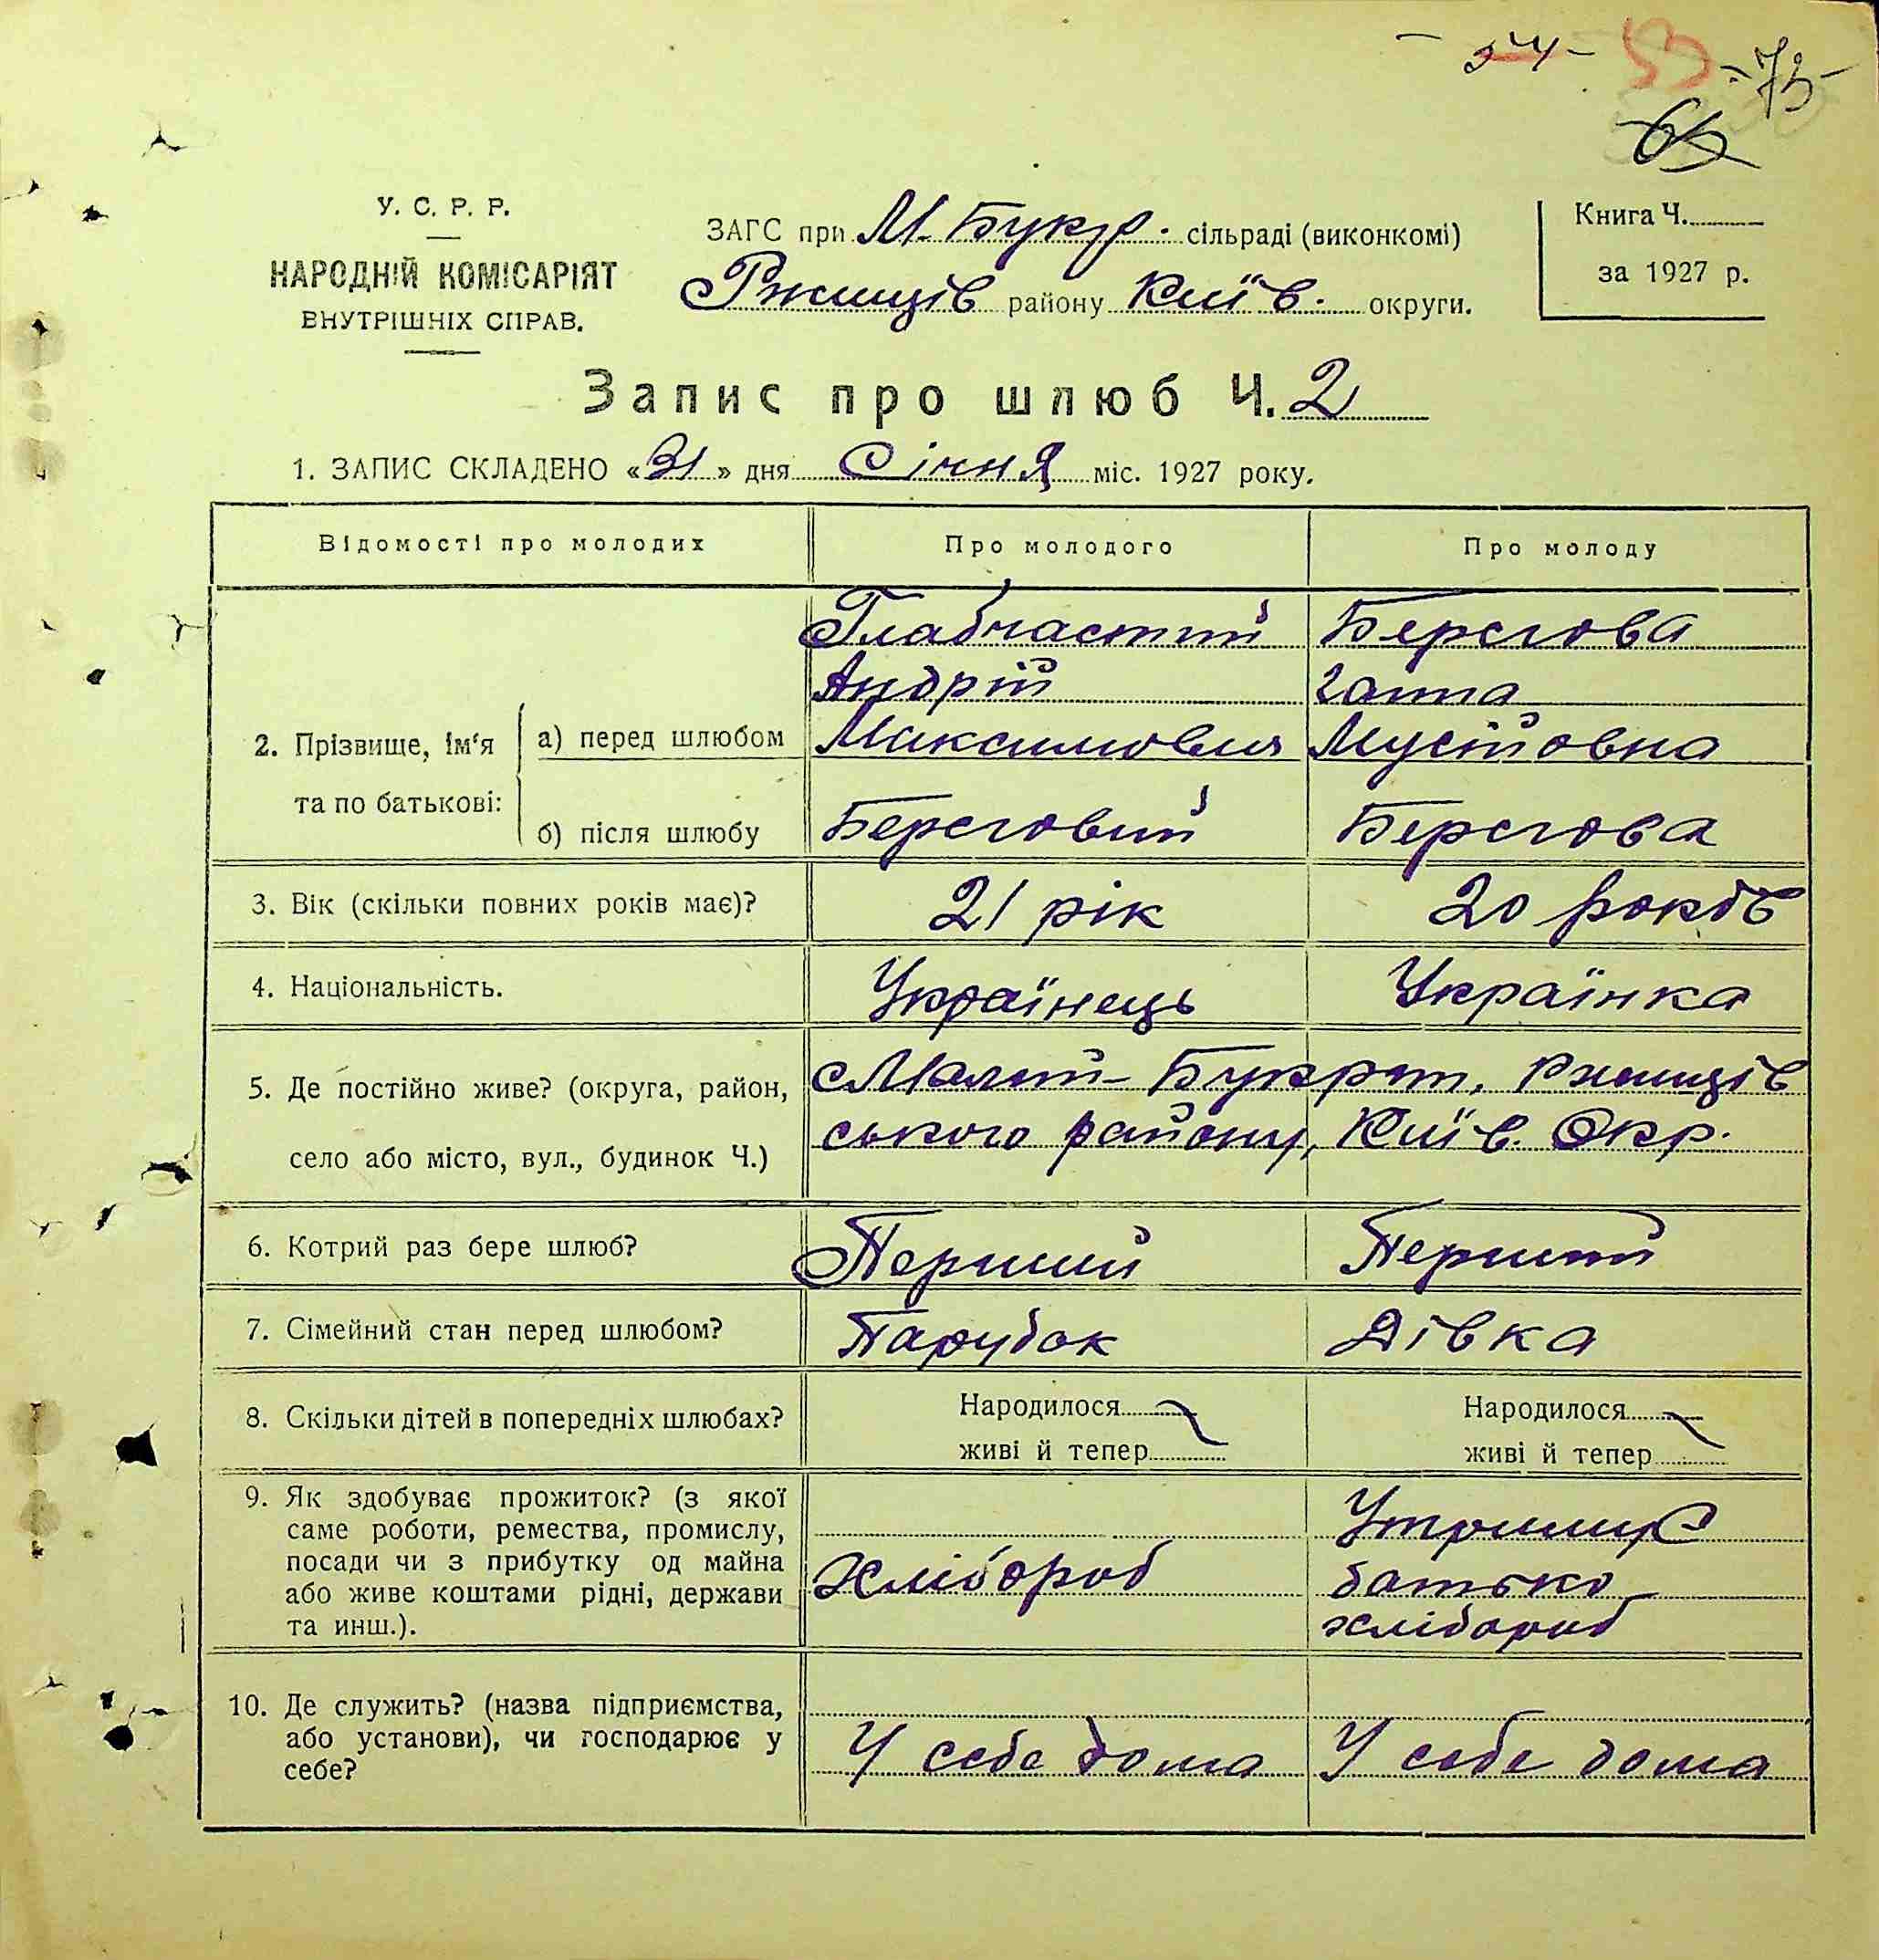 - 24 - 53 - 73 -
65
У. С. Р. Р.
НАРОДНІЙ КОМІСАРІЯТ
ВНУТРІШНІХ СПРАВ.
ЗАГС при М-Букр. сільраді (виконкомі)
Ржищів району Київ. округи.
Книга Ч.
за 1927 р.
Запис про шлюб Ч. 2
1. ЗАПИС СКЛАДЕНО «31» дня Січня міс. 1927 року.
Відомості про молодих Про молодого Про молоду
2. Прізвище, ім'я та по батькові:
а) перед шлюбом
Главчастий Берегова
Андрій Ганна
Максимович Мусіївна
б) після шлюбу Береговий Берегова
3. Вік (скільки повних років має)? 21 рік 20 років
4. Національність. Українець Українка
5. Де постійно живе? (округа, район,
село або місто, вул., будинок Ч.)
с Малий-Букрин, Ржищів
ського району, Київ. Окр.
6. Котрий раз бере шлюб? Перший Перший
7. Сімейний стан перед шлюбом? Парубок Дівка
8. Скільки дітей в попередніх шлюбах? Народилося Народилося
живі й тепер живі й тепер
9. Як здобуває прожиток? (з якої
саме роботи, ремества, промислу,
посади чи з прибутку од майна
або живе коштами рідні, держави
та инш.).
Хлібороб
Утримує
батько
хлібороб
10. Де служить? (назва підприємства,
або установи), чи господарює у
себе?
У себе дома У себе дома